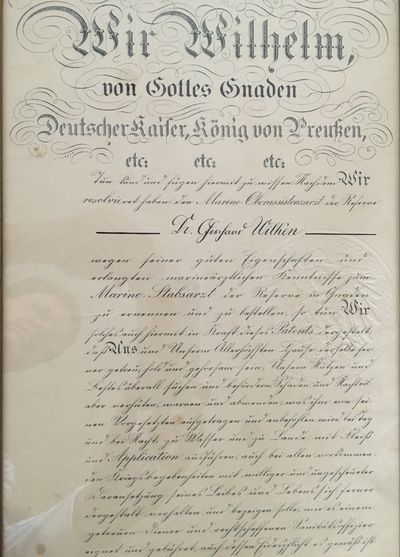 Wir Wilhelm,
von Gottes Gnaden
Deutscher Kaiser, König von Preußen,
etc: etc: etc:
Tun kund und fügen hiermit zu wissen Nachdem Wir
resolviret haben den Marine Oberassistenzarzt der Reserve
Dr. Gerhard Wilken
wegen seiner guten Eigenschaften und
erlangten marineärztlichen Kenntnisse zum
Marine Stabsarzt der Reserve in Gnaden
zu ernennen und zu bestellen, so tun Wir
solches auch hiermit in Kraft dieses Patents dergestalt
daß Uns und Unserm Allerhöchsten Hause derselbe fer-
ner getreu, hold und gehorsam sein, Unsern Nutzen und
Bestes überall suchen und befördern Schaden und Nachteil
aber verhüten, warnen und abwenden, was ihm von sei-
nen Vorgesetzten aufgetragen und anbefohlen wird bei Tag
und bei Nacht, zu Wasser und zu Lande mit Fleiß
und Application ausführen auch bei allen vorkommen-
den Kriegsbegebenheiten mit williger und ungescheuter
Daransetzung seines Leibes und Lebens sich ferner
dergestalt verhalten und bezeigen solle, wie es einem
getreuen Diener und rechtschaffenen Sanitätsoffizier
eignet und gebühret, auch dessen Pflicht es gemäß ist